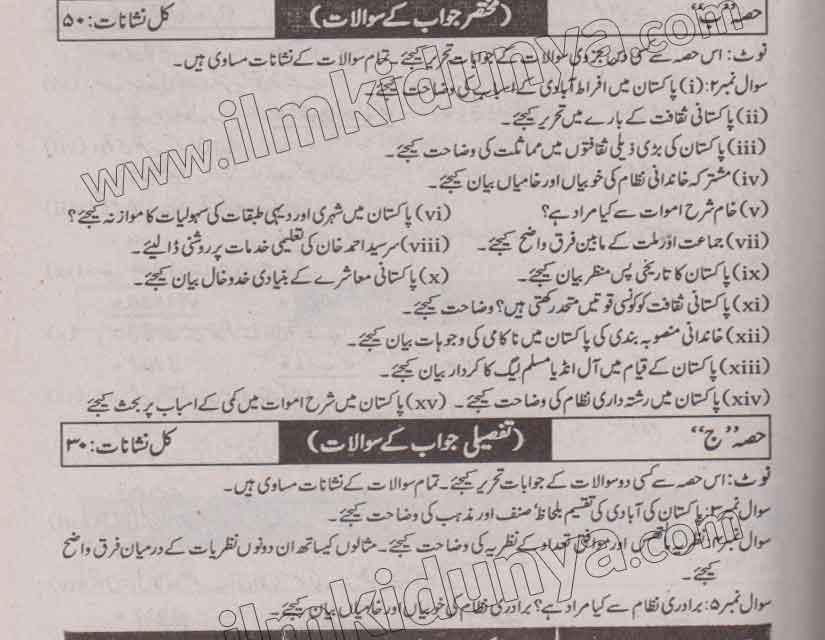 حصہ ”ب“ (مختصر جواب کے سوالات) کل نشانات: ۵۰
نوٹ: اس حصہ سے کسی دس جزوی سوالات کے جوابات تحریر کیجئے۔ تمام سوالات کے نشانات مساوی ہیں۔
سوال نمبر۲: (i) پاکستان میں افراط آبادی کے اسباب کی وضاحت کیجئے۔
(ii) پاکستانی ثقافت کے بارے میں تحریر کیجئے۔
(iii) پاکستان کی بڑی ذیلی ثقافتوں میں مماثلت کی وضاحت کیجئے۔
(iv) مشترکہ خاندانی نظام کی خوبیاں اور خامیاں بیان کیجئے۔
(v) خام شرح اموات سے کیا مراد ہے؟ (vi) پاکستان میں شہری اور دیہی طبقات کی سہولیات کا موازنہ کیجئے؟
(vii) جماعت اور ملت کے مابین فرق واضح کیجئے۔ (viii) سرسید احمد خان کی تعلیمی خدمات پر روشنی ڈالیئے۔
(ix) پاکستان کا تاریخی پس منظر بیان کیجئے۔ (x) پاکستانی معاشرے کے بنیادی خدوخال بیان کیجئے۔
(xi) پاکستانی ثقافت کو کونسی قوتیں متحد رکھتی ہیں؟ وضاحت کیجئے۔
(xii) خاندانی منصوبہ بندی کی پاکستان میں ناکامی کی وجوہات بیان کیجئے۔
(xiii) پاکستان کے قیام میں آل انڈیا مسلم لیگ کا کردار بیان کیجئے۔
(xiv) پاکستان میں رشتہ داری نظام کی وضاحت کیجئے۔ (xv) پاکستان میں شرح اموات میں کمی کے اسباب پر بحث کیجئے
حصہ ”ج“ (تفصیلی جواب کے سوالات) کل نشانات: ۳۰
نوٹ: اس حصہ سے کسی دو سوالات کے جوابات تحریر کیجئے۔ تمام سوالات کے نشانات مساوی ہیں۔
سوال نمبر۳: پاکستان کی آبادی کی تقسیم بلحاظ صنف اور مذہب کی وضاحت کیجئے۔
سوال نمبر۴: نظریہ اور تعداد کے نظریہ کی وضاحت کیجئے۔ مثالوں کیساتھ ان دونوں نظریات کے درمیان فرق واضح
کیجئے۔
سوال نمبر۵: برادری نظام سے کیا مراد ہے؟ برادری نظام کی خوبیاں اور خامیاں بیان کیجئے۔
www.ilmkidunya.com
www.ilmkidunya.com